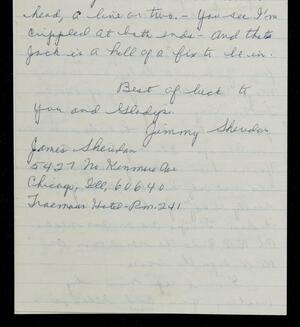 head, a line or two. - You see I'm
crippled at both ends - and that
Jack is a hell of a fix to be in.
Best of luck to
you and Gladys.
Jimmy Sheridan
James Sheridan
5427 No. Kenmore Ave
Chicago, Ill, 60640
Hotel - Rm. 241